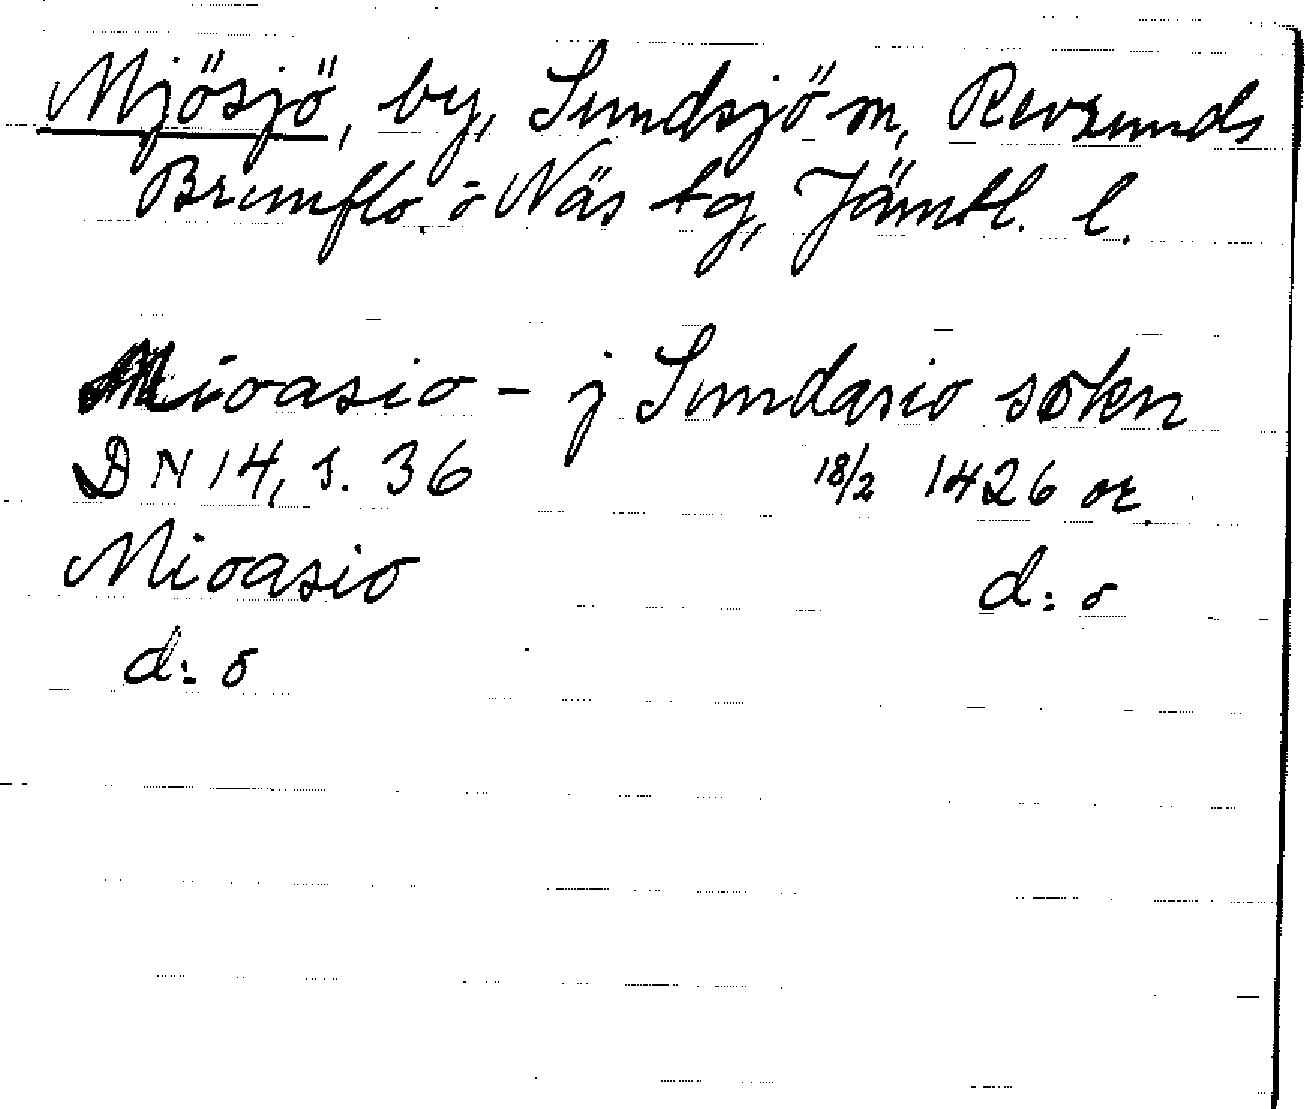 Mjösjö, by, Sundsjö sn, Revsunds
Brunflo. o Näs tg, Jämtl. l.
Mioasio - j Sundasio sokn
DN 14, s. 36 18/2 1426 or.
Mioasio d:o
d:o